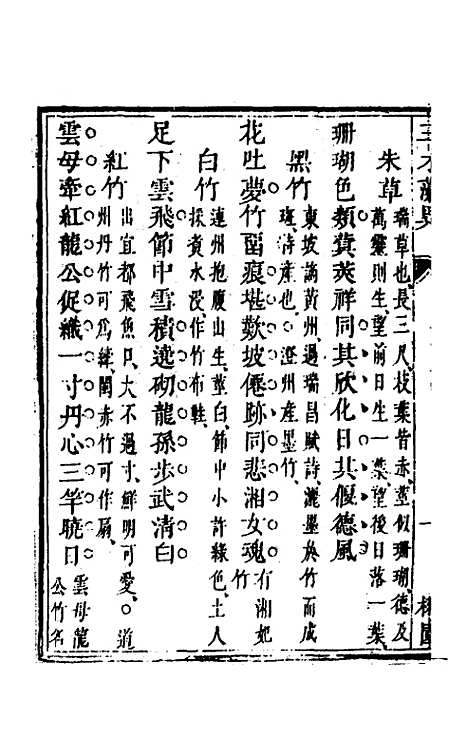 朱草 瑞草也、長三尺、枝葉皆赤、莖似珊瑚、德及
萬靈則生、望前日生一葉、望後日落一葉、
珊瑚色類蓂莢祥同其欣化日共偃德風
黑竹 東坡謫黃州、過瑞昌賦詩、灑墨於竹而成
斑、詩產也○澄州產墨竹、
花吐夢竹畱痕堪歎坡僊跡同悲湘女魂 有湘妃
竹
白竹 連州抱腹山生、莖白、節中小許綠色、土人
採黃水浸、作竹布鞋、
足下雲飛節中雪積遶砌龍孫步武清白
紅竹 出宜都飛魚口、大不過寸、鮮明可愛、○道
州丹竹可爲䋲、閩赤竹可作扇、
雲母牽紅龍公促織一寸丹心三竿曉日 雲母龍
公竹名